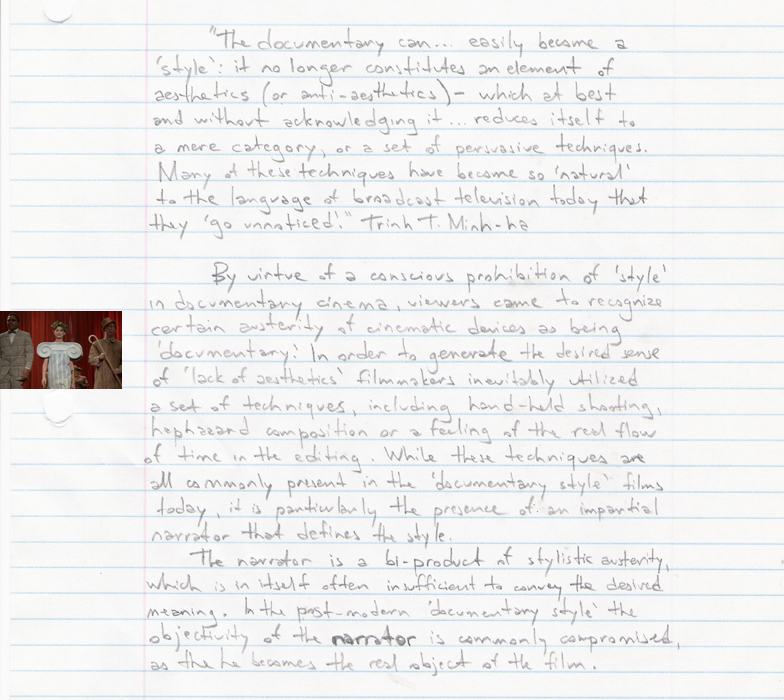 "The documentary can... easily become a
'style': it no longer constitutes an element of
aesthetics (or anti-aesthetics) - which at best
and without acknowledging it... reduces itself to
a mere category, or a set of persuasive techniques.
Many of these techniques have become so 'natural'
to the language of broadcast television today that
they 'go unnoticed'." Trinh T. Minh-ha
By virtue of a conscious prohibition of 'style'
in documentary cinema, viewers came to recognize
certain austerity of cinematic devices as being
'documentary'. In order to generate the desired sense
of 'lack of aesthetics' filmmakers inevitably utilized
a set of techniques, including hand-held shooting,
haphazard composition or a feeling of the real flow
of time in the editing. While these techniques are
all commonly present in the 'documentary style' films
today, it is particularly the presence of an impartial
narrator that defines the style.
The narrator is a bi-product of stylistic austerity,
which is in itself often insufficient to convey the desired
meaning. In the post-modern 'documentary style' the
objectivity of the narrator is commonly compromised,
as the he becomes the real object of the film.